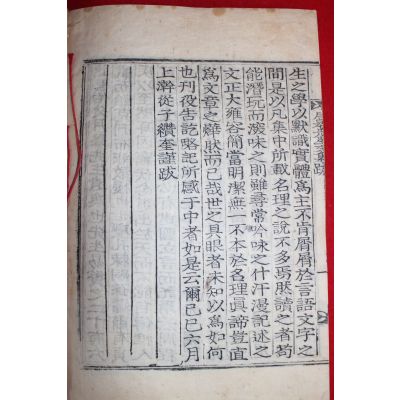 生之學以默識實體爲主不肯屑屑於言語文字之
間是以凡集中所載名理之說不多焉然讀之者苟
能潛玩而深味之則雖尋常吟咏之什汗漫記述之
文正大雍容簡當明潔無一不本於名理眞諦豈直
爲文章之燁然而已哉世之具眼者未知以爲如何
也刊役告訖略記所感于中者如是云爾己巳六月
上澣從子纘奎謹跋